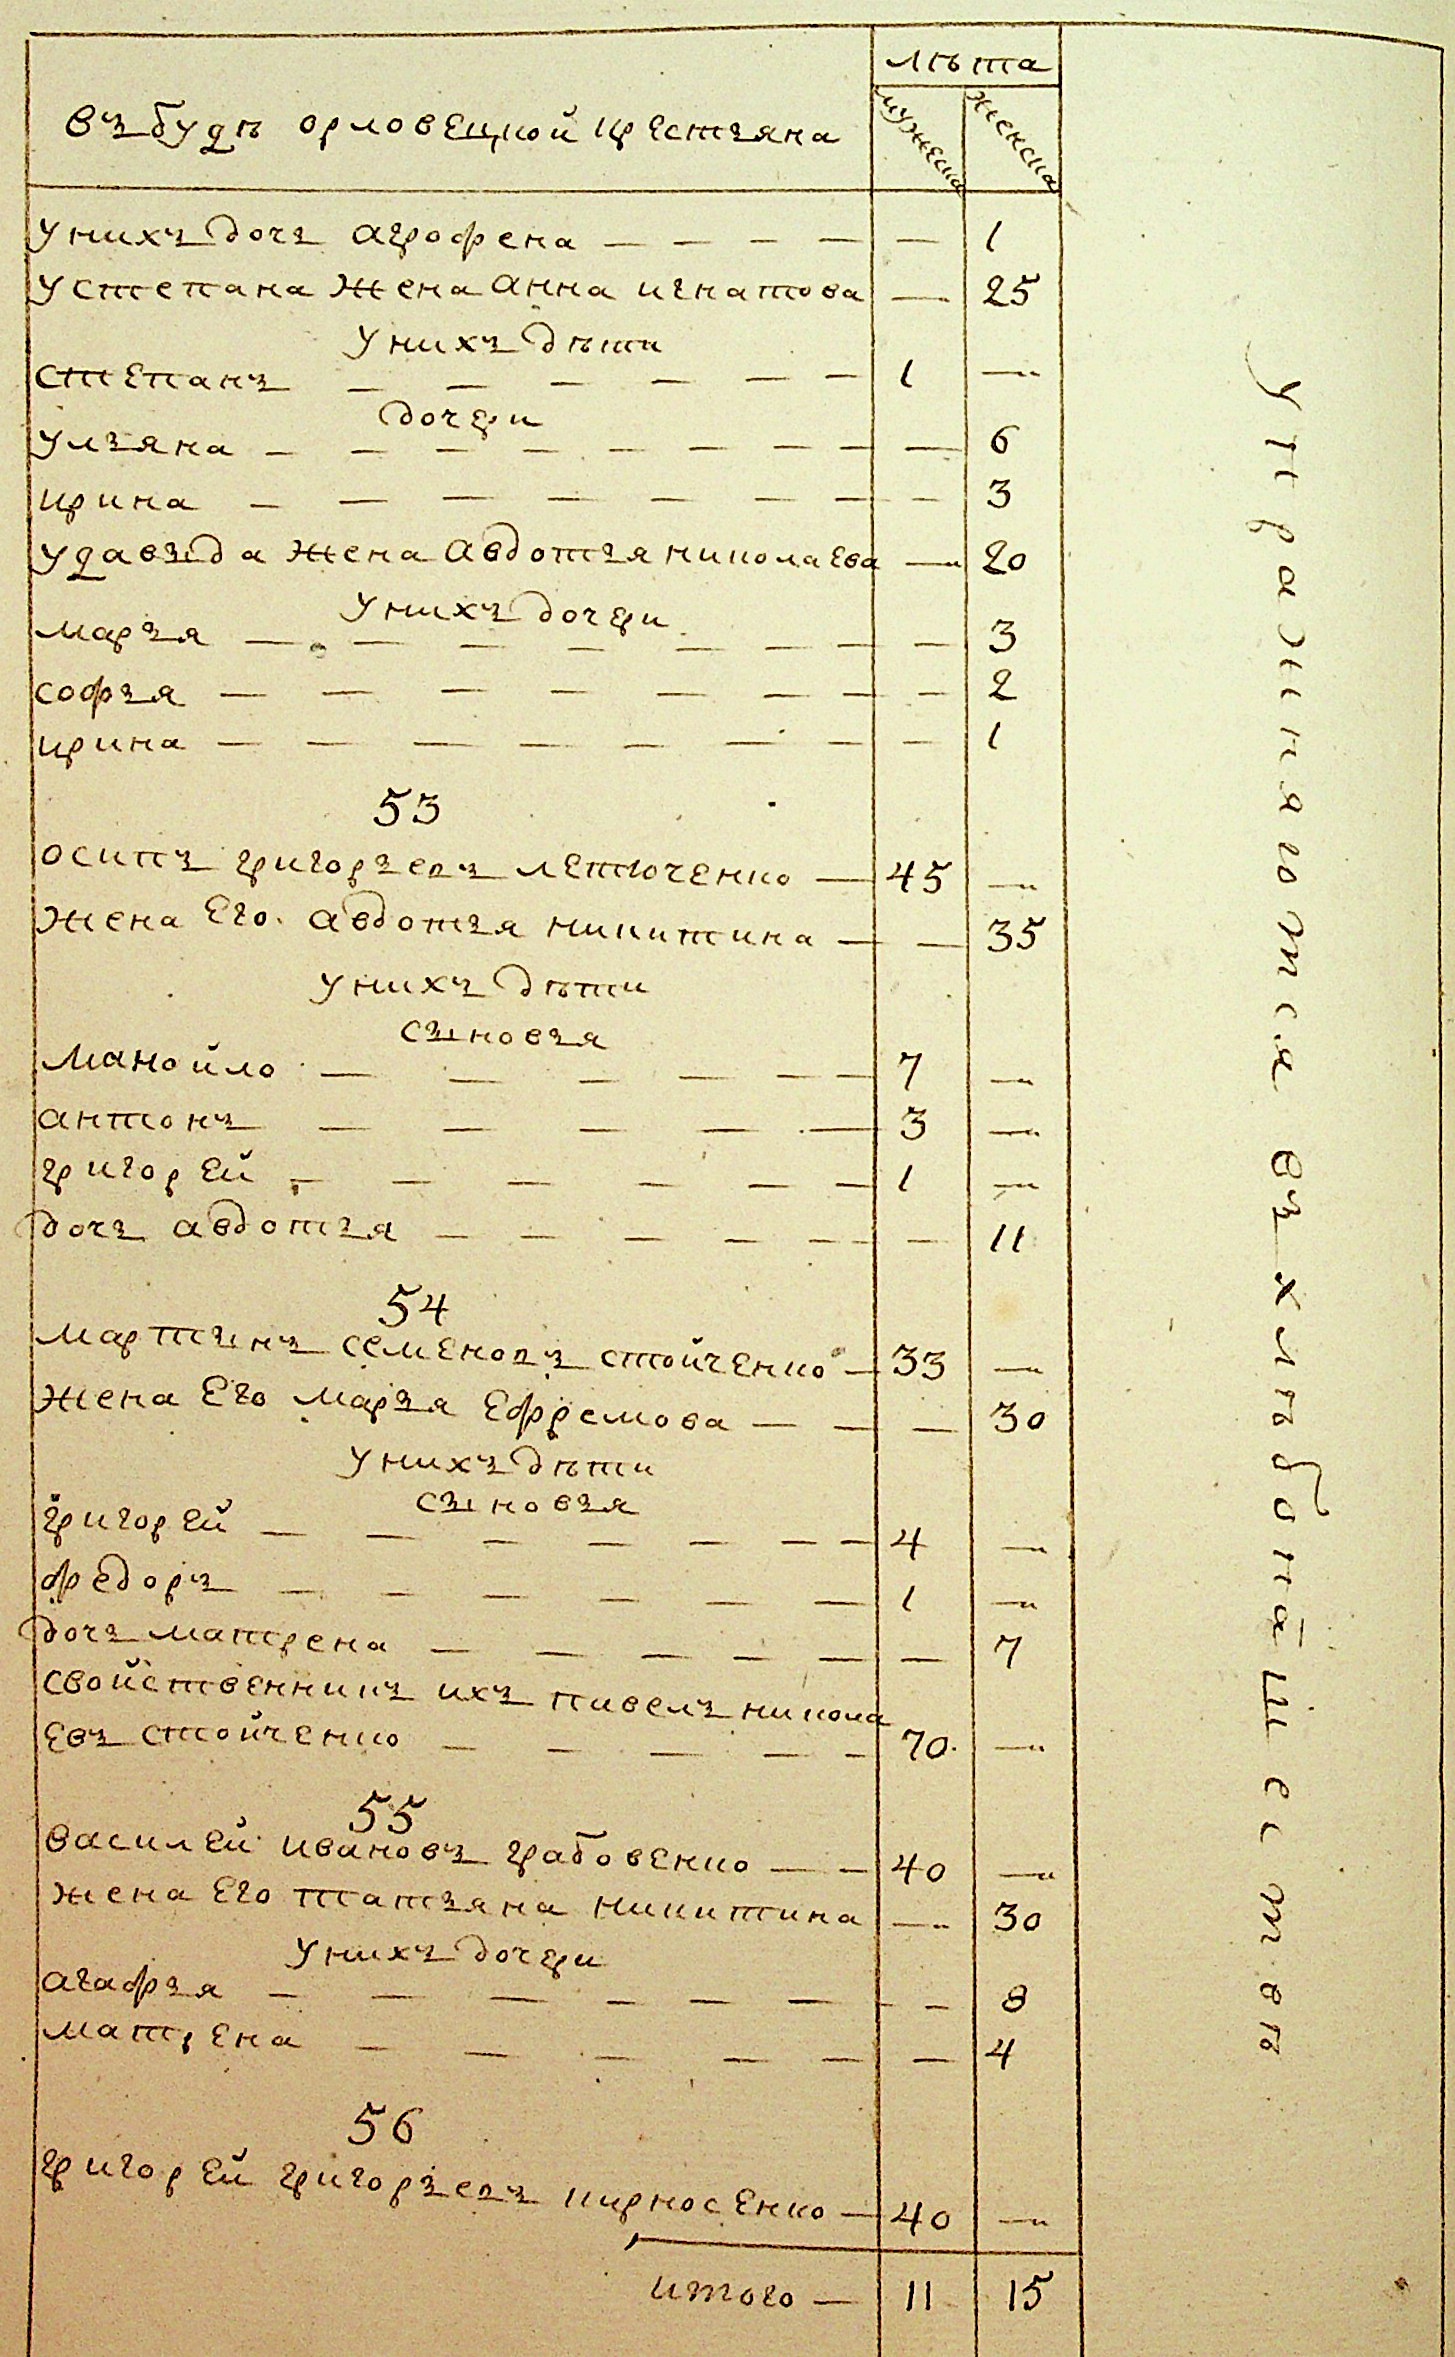 лѣта
въ будѣ орловецкой крестьяна
мужеска женска
У нихъ дочь агрофена — 1
У степана жена анна игнатова — 25
У нихъ дѣти
степанъ 1 —
дочери
ульяна — 6
ирина — 3
У давыда жена авдотья николаева — 20
У нихъ дочери
марья — 3
софья — 2
ирина — 1
53
осипъ григорьевъ летюченко — 45 —
жена его авдотья никитина — 35
У нихъ дѣти
сыновья
манойло 7 —
антонъ 3 —
григорей 1 —
дочь авдотья — 11
54
мартынъ семеновъ стойченко — 33 —
жена его марья ефремова — 30
У нихъ дѣти
сыновья
григорей 4 —
федоръ 1 —
дочь матрена — 7
свойственникъ ихъ павелъ никола
евъ стойченко 70 —
55
василей ивановъ грабовенко — 40 —
жена его татьяна никитина — 30
У нихъ дочери
агафья — 8
матрена — 4
56
григорей григорьевъ кирносенко — 40 —
итого — 11 15
упражняются въ хлѣбопашествѣ